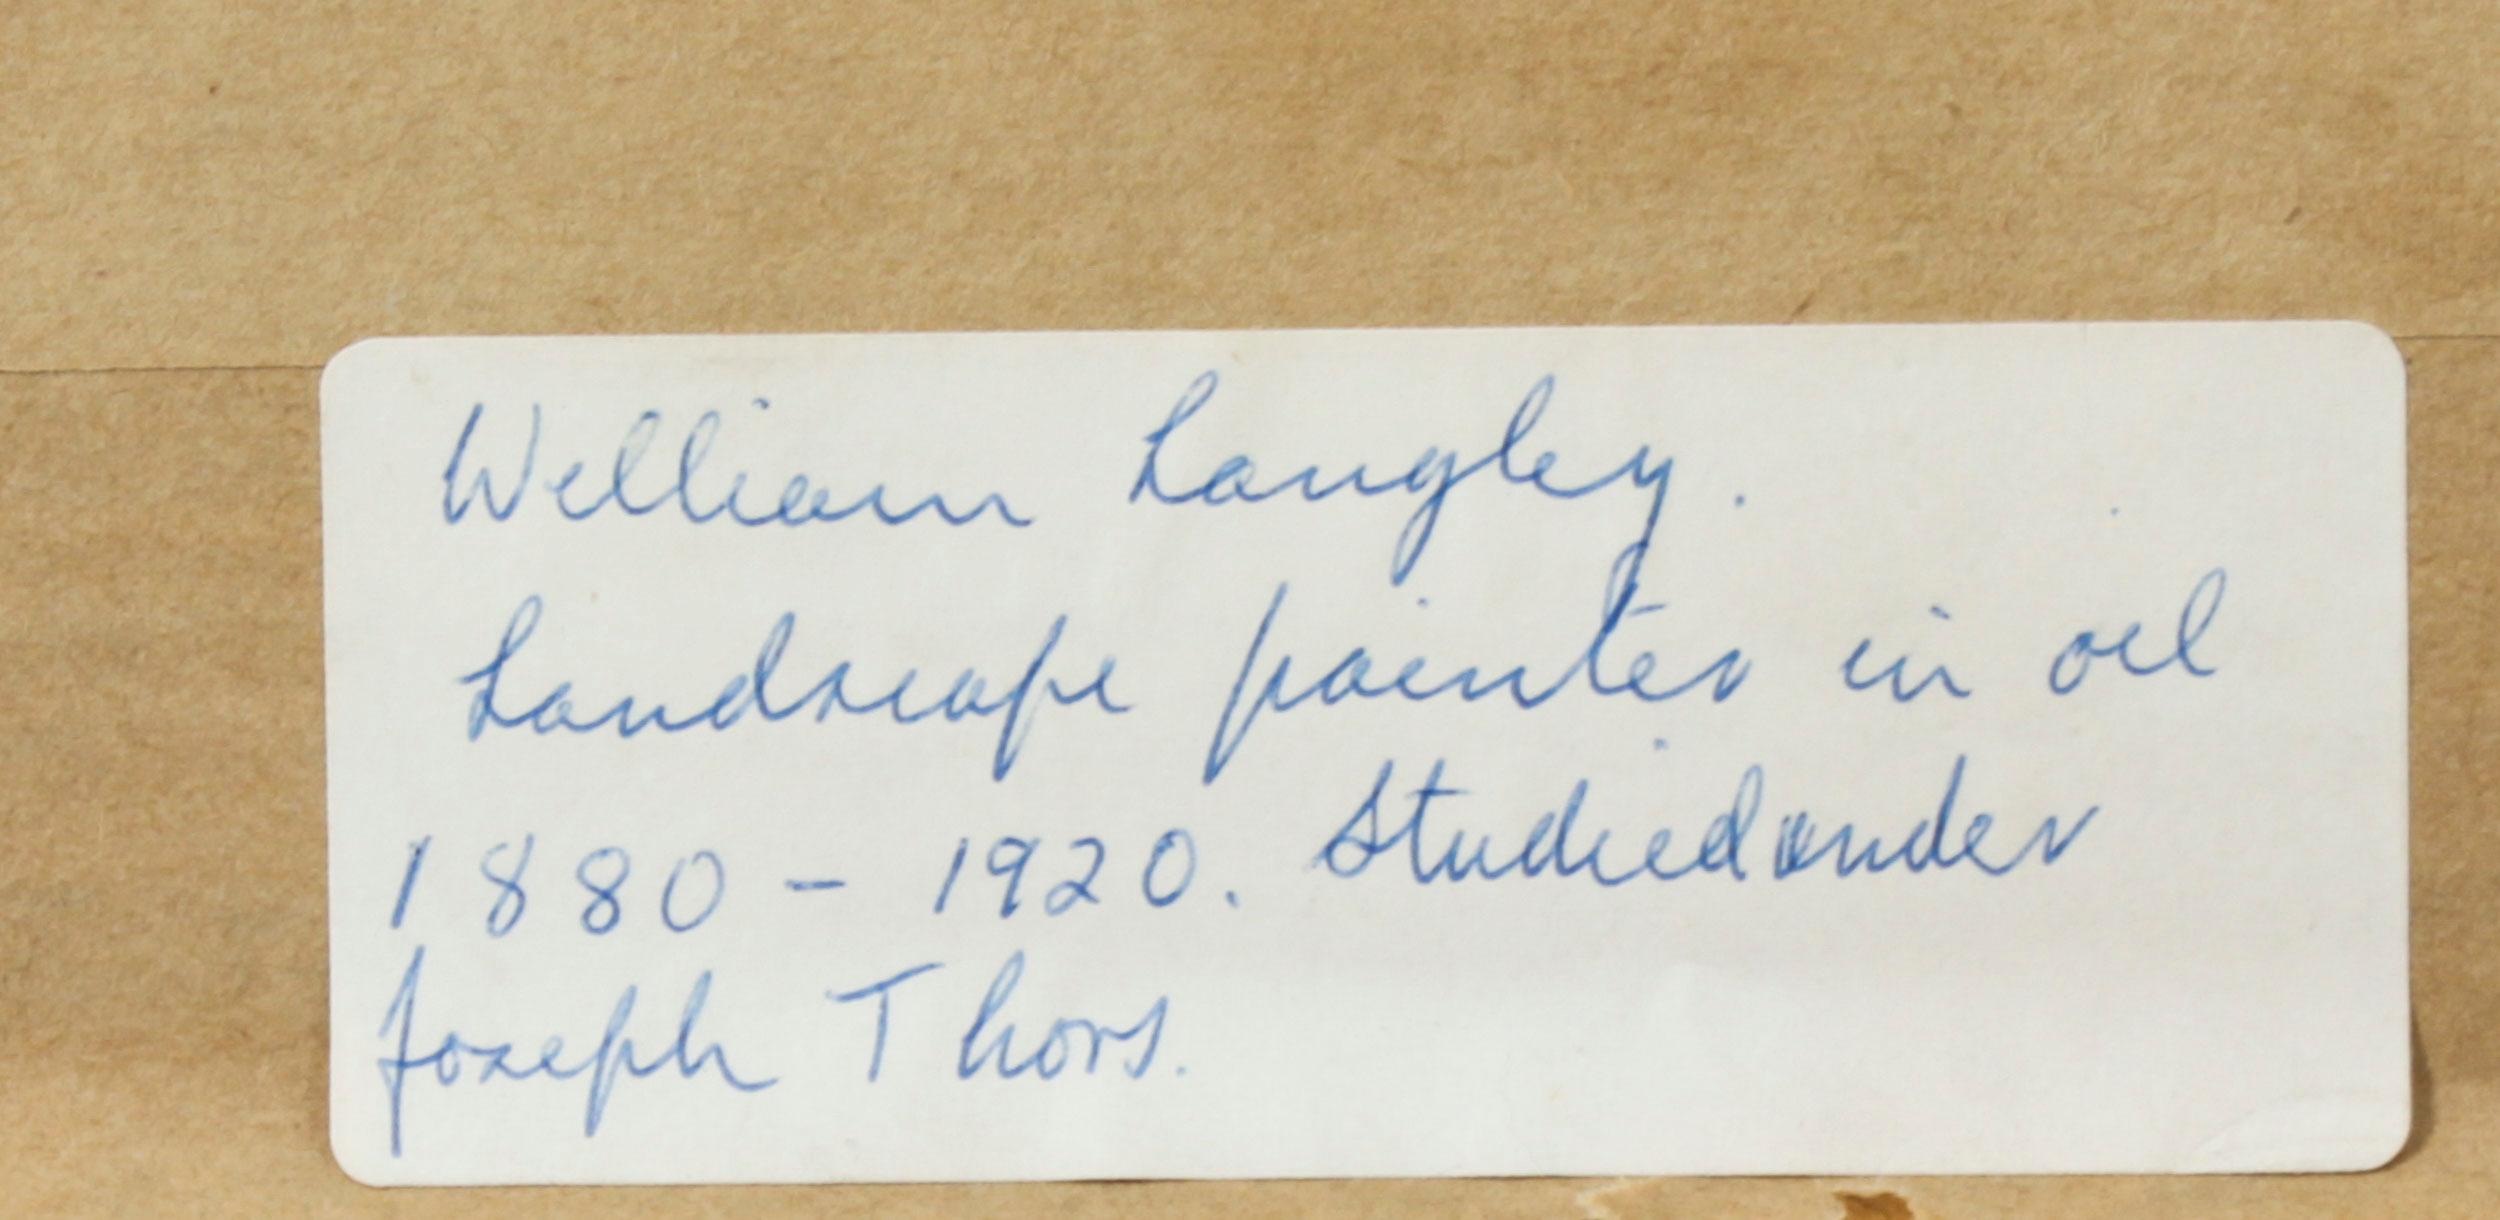 William Langley.
Landscape painter in oil
1880 - 1920. Studied under
Joseph Thors.